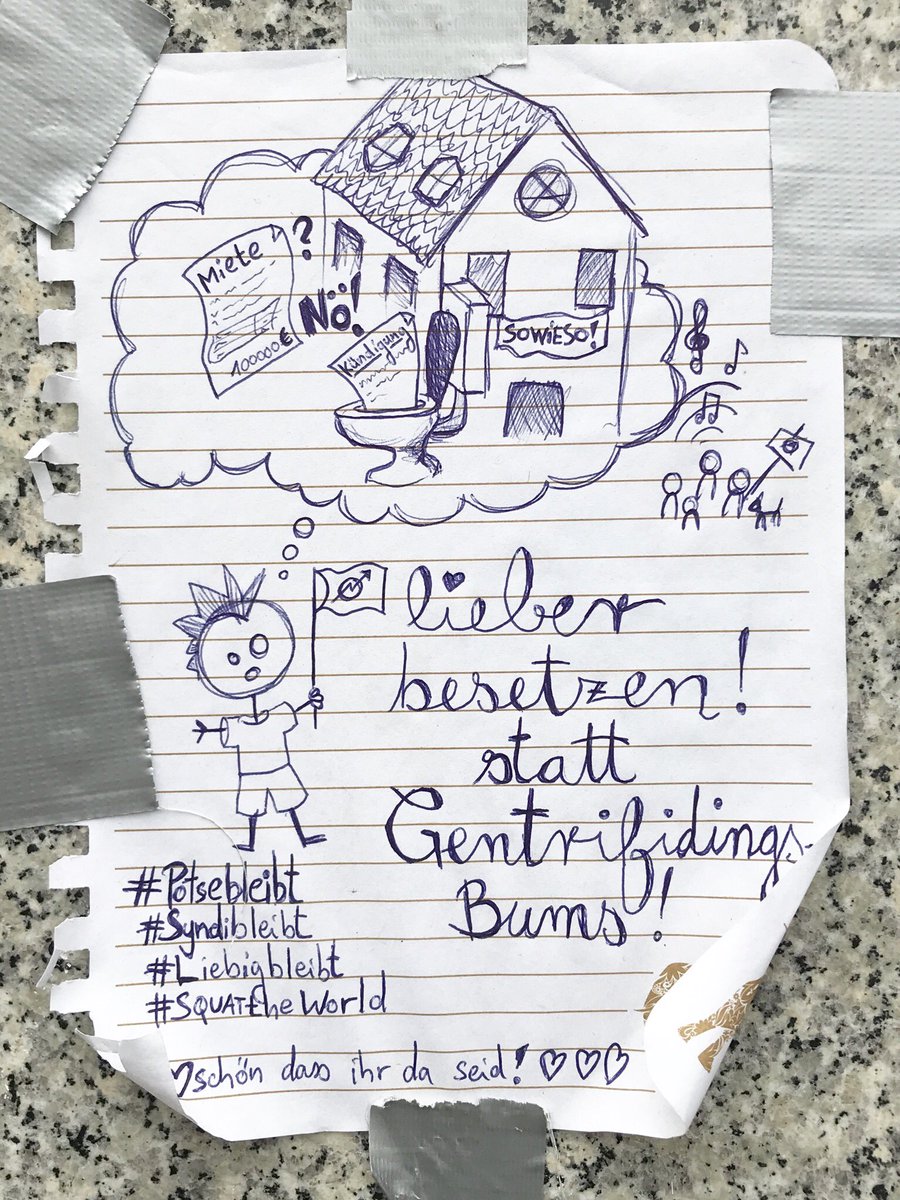 Miete
?
Nö!
100000€
Kündigung
SOWiESO!
lieber
besetzen!
statt
Gentrifidings-
Bums!
#Potsebleibt
#Syndibleibt
#Liebigbleibt
#SQUATtheWorld
schön dass ihr da seid!